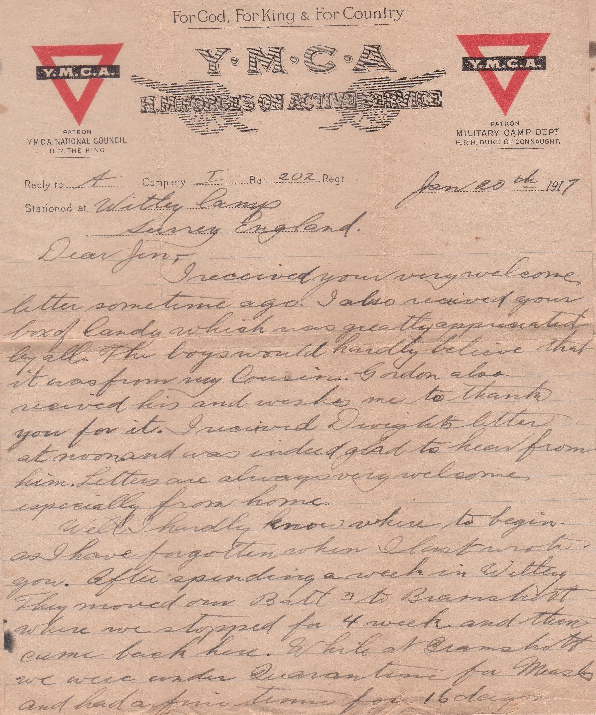 For God, For King & For Country
Y.M.C.A
H.M. FORCES ON ACTIVE SERVICE
Y.M.C.A.
Y.M.C.A.
PATRON
Y.M.C.A. NATIONAL COUNCIL
H.M. THE KING
PATRON
MILITARY CAMP DEPT
H.R.H. DUKE OF CONNAUGHT.
Reply to A Company I Bat 202 Regt
Jan 20 th 1917
Stationed at Witley Camp
Surrey England.
Dear Jen,
I received your very welcome
letter sometime ago. I also recieved your
box of Candy which was greatly appreciated
by all. The boys would hardly believe that
it was from my Cousin. Gordon also
recieved his and wishes me to thank
you for it. I recieved Dwights letter
at noon and was indeed glad to hear from
him. Letters are always very welcome
especially from home.
Well I hardly know where to begin
as I have forgotten when I last wrote
you. After spending a week in Witley
They moved our Batt n to Bramshott
where we stopped for 4 week and then
came back here. While at Bramshott
we were under Quarantine for Measles
and had a fine time for 16 days